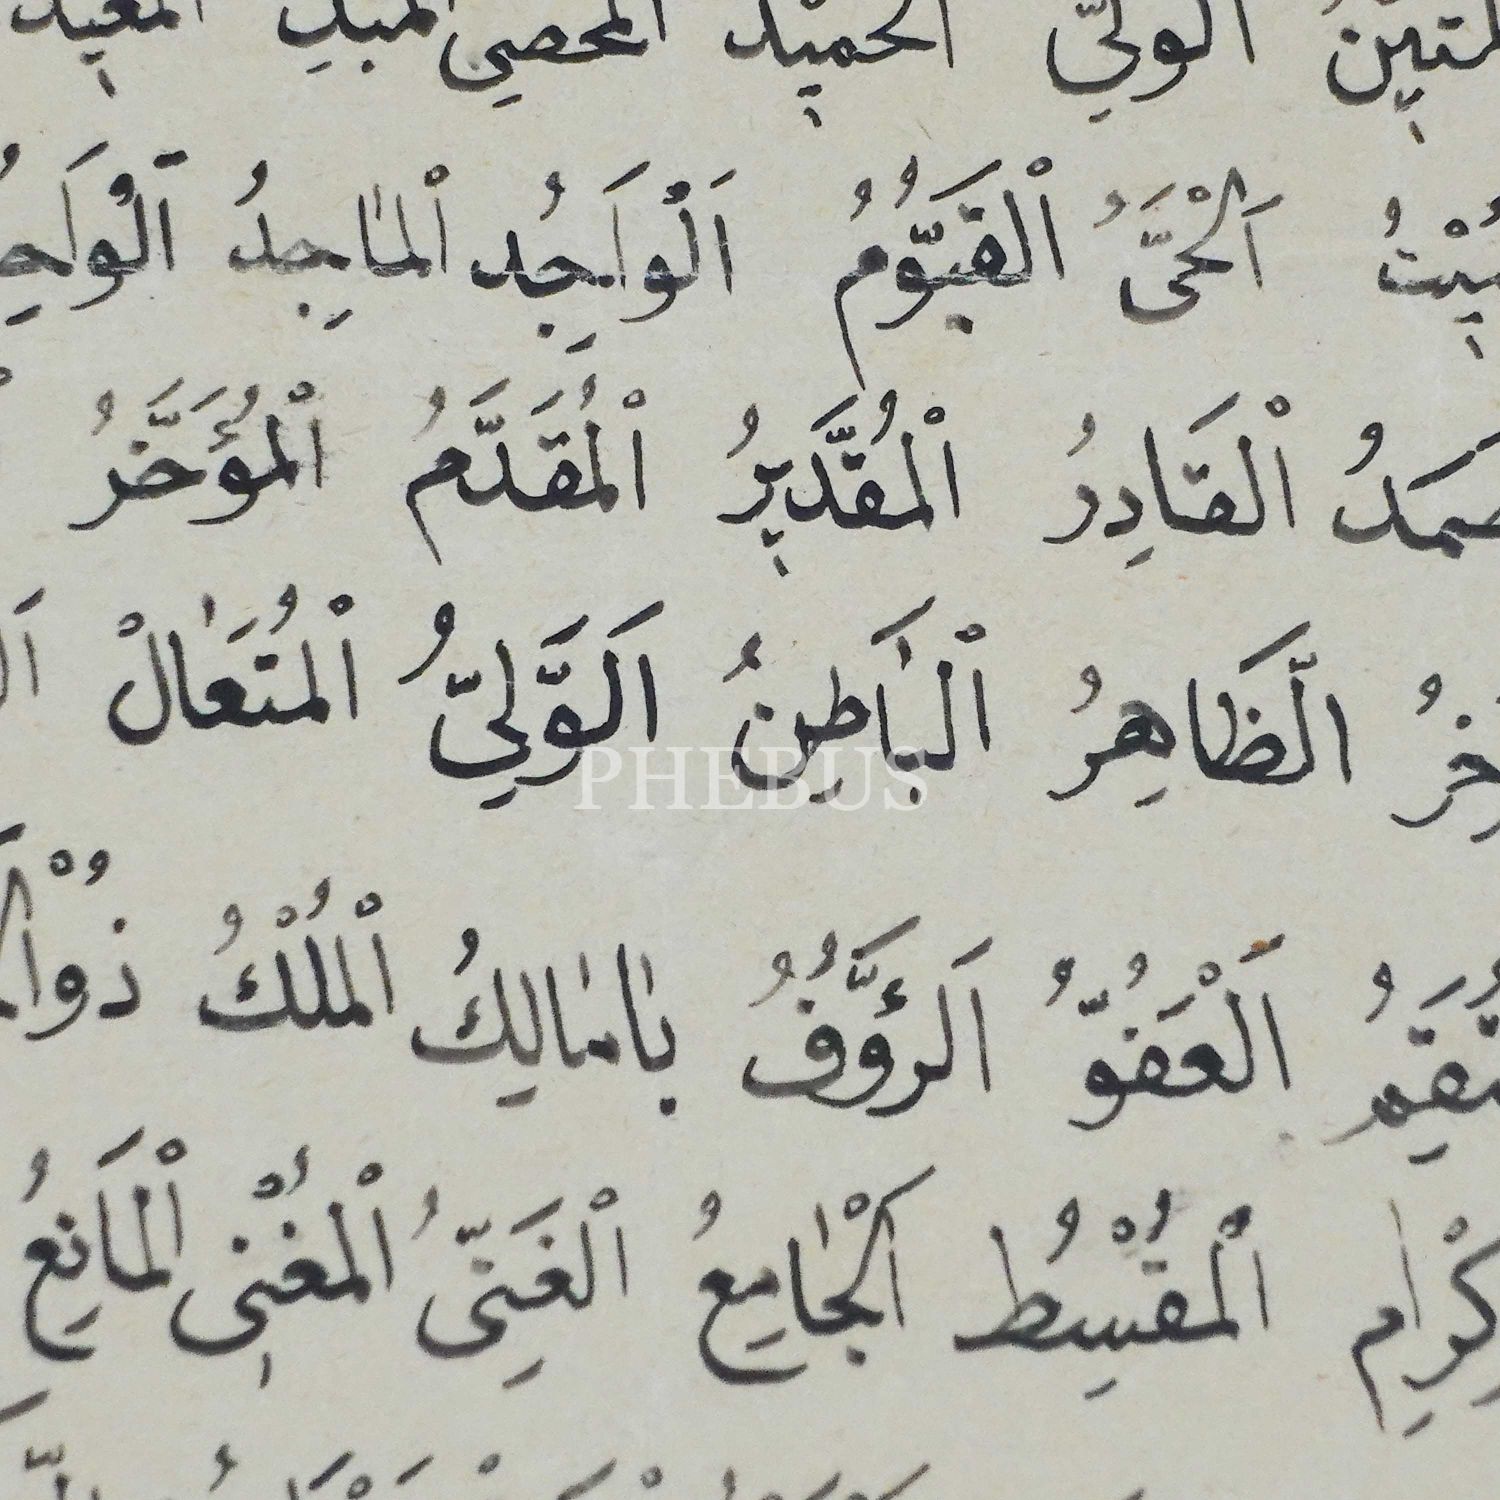 المتين الولي الحميد المحصي المبد المعيد
اَلْحَىَّ الْقَيُّوُمُ اَلْوَاَجِدُ الْمٰاجِدُ
الْقَادِرُ الْمُقَّدِيرُ الْمُقَدَّمُ الْمُؤَخَّرُ
الَّظَاهِرُ الْبٰاَطِنُ اَلَوَّلِىُّ الْمُتَعٰالْ
اَلْعَفُوُّ اَلرَؤُّفُ يٰامٰالِكُ الْمُلْكُ ذُوْا
كْرٰامِ الْمُقْسِطُ اَلْجٰامِعُ الْغَنِىُّ الْمُغْنِى الْمَانِعُ
PHEBUS